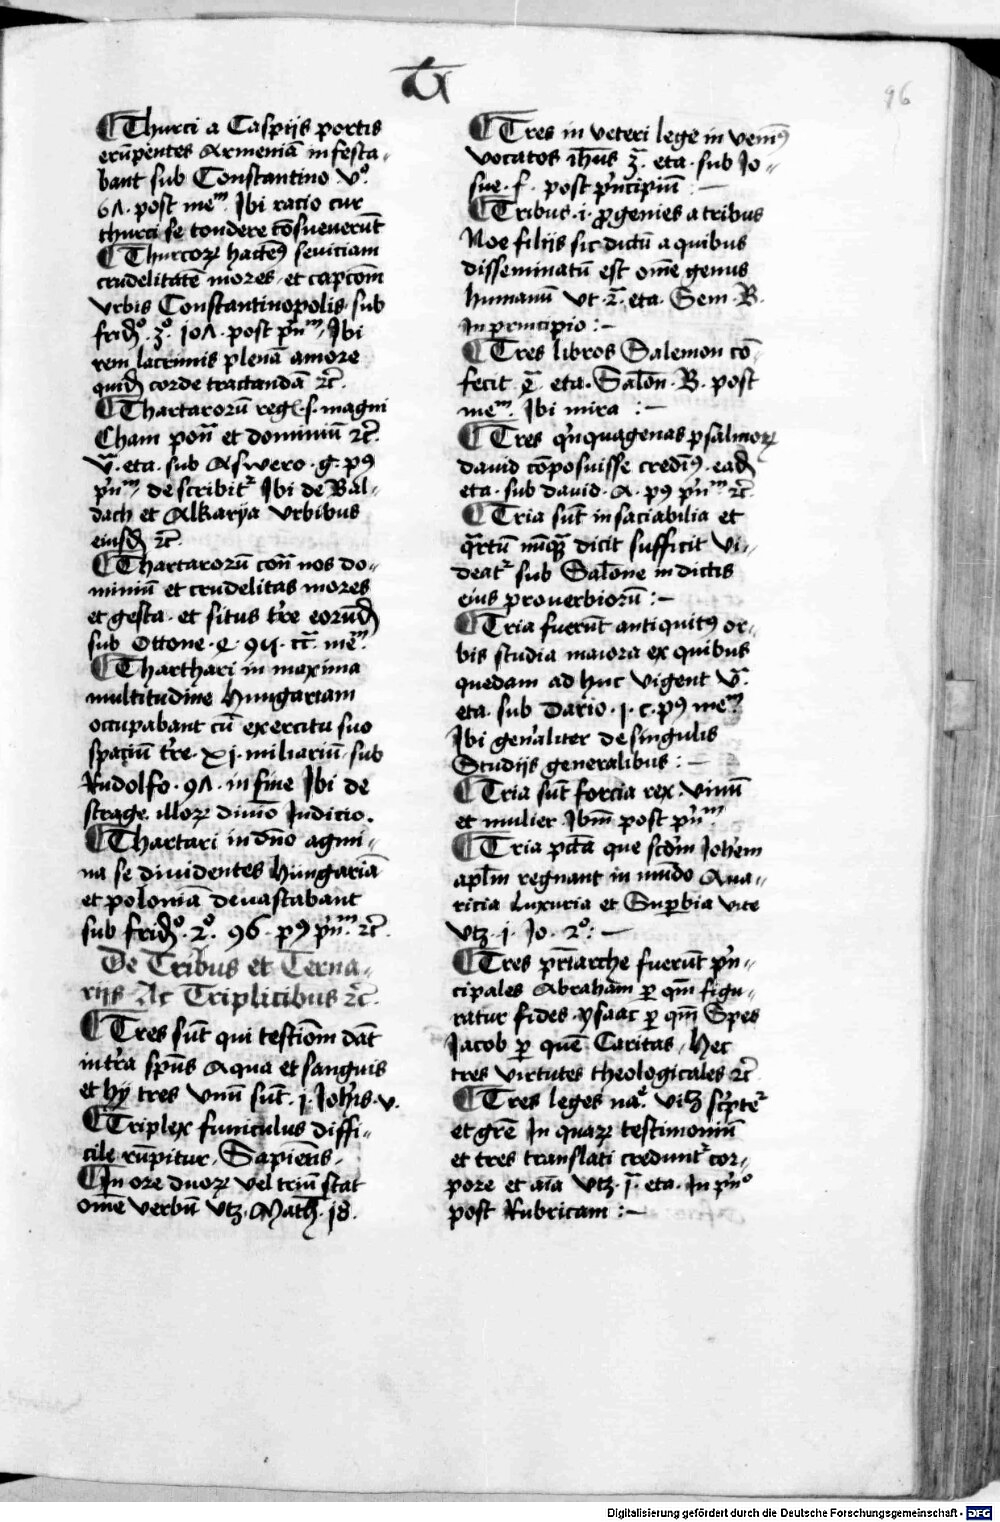 96
Thurci a Caspijs portis
erūpentes Armeniā infesta-
bant sub Constantino v°.
6ʌ. post meᵐ. Ibi racio cur
thurci se tondere cōsueuerūt
Thurcoꝝ hacteꝰ seuiciam
crudelitatē mores et capcōm
vrbis Constantinopolis sub
frid̄°. ʒ°. ioʌ. post pn̄ᵐ, Ibi
rem lacrimis plenā amore
quid̄ corde tractandā ⁊c̄.
Thartarorū regl. s. magni
Cham pon̄ et dominiū ⁊c̄.
v̄. eta. sub Aswero. g. pꝰ
pn̄ᵐ, describit² Ibi de Bal-
dach et Alkarya vrbibus
eiusd̄ ⁊c̄
Thartarorū con̄ nos do-
miniū et crudelitas mores
et gesta. et situs tr̄e eorūd̄
sub Ottone
Tharthari in maxima
multitudine Hungariam
occupabant cū exercitu suo
spaciū tr̄e. xj. miliariū sub
Rudolfo. 9ʌ. in fine Ibi de
strage. illoꝝ diuīo Iudicio.
Thartari in duo agmi-
na se diuidentes Hungariā
et poloniā deuastabant
sub frid̄°. 2°. 96. pꝰ pn̄ᵐ. ⁊c̄.
De Tribus et Terna-
rijs Ac Triplicibus ⁊c̄.
Tres sūt qui testiōm dāt
in tr̄a spūs Aqua et sanguis
et hy tres vnū sūt. j. Joh̄is. v.
Triplex funiculus diffi-
cile rūpitur. Sapiētis.
In ore duoꝝ vel triū stat
ōme verbū vtʒ. Math̄. j8.
Tres in veteri lege in vemꝰ
vocatos ih̄us ʒ̄. eta. sub Jo-
sue. f. post pn̄cipiū :—
Tribus. i. ꝓgenies a tribus
Noe filijs sic dictū a quibus
disseminatū est ōme genus
humanū vt. 2̄. eta. Sem. B.
In principio :—
Tres libros Salemon cō-
fecit eta. Salōn. B. post
meᵐ. Ibi mira :—
Tres qn̄quagenas psalmoꝝ
dauid cōposuisse credīꝰ. ead̄
eta. sub dauid. A. pꝰ pn̄ᵐ ⁊c̄.
Tria sūt insaciabilia et
qᵃrtū nūqᵃ dicit sufficit vi-
deat² sub Salōne in dictis
eius prouerbiorū :—
Tria fuerūt antiquitꝰ or-
bis studia maiora ex quibus
quedam ad huc vigent v̄.
eta. sub Dario. j. c. pꝰ meᵐ
Ibi gen̄aliter de singulis
Studijs generalibus :—
Tria sūt forcia rex. vinū
et mulier. Ibīm post pn̄ᵐ
Tria pctā que scd̄m Joh̄em
apl̄m regnant in mūdo Aua-
ricia Luxuria et Suꝑbia vite
vtʒ. j. Jo. 2°. :—
Tres pr̄iarche fuerūt pn̄-
cipales Abrahām ꝑ qm̄ figu-
ratur fides. ysaac ꝑ qm̄ Spes
Jacob ꝑ quē Caritas, Hec
tres virtutes theologicales ⁊c̄
Tres leges na². vicꝫ scr̄pte²
et gr̄e In quaꝝ testimoniū
et tres translati credunt² cor-
pore et aīa vtʒ. j̄. eta. In pn̄°
post Rubricam :—
Digitalisierung gefördert durch die Deutsche Forschungsgemeinschaft - DFG